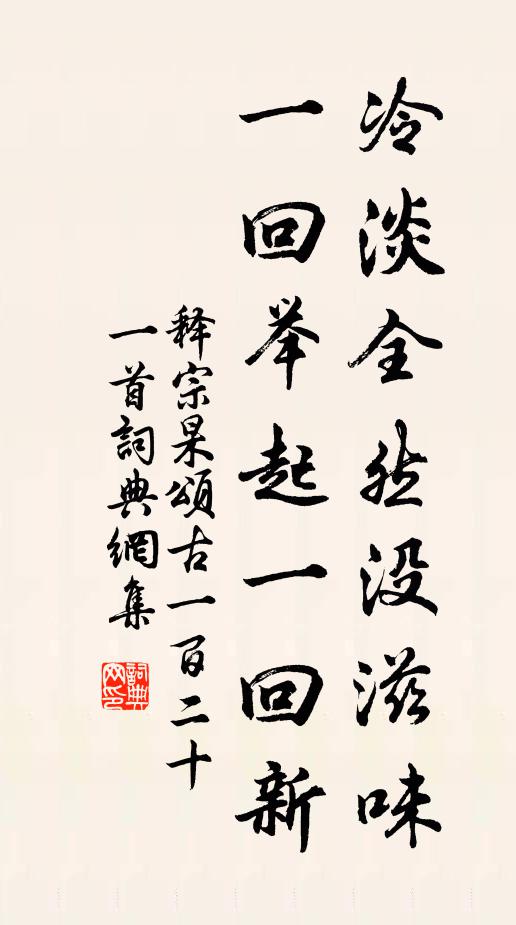 冷淡全然没滋味
一回举起一回新
释宗杲頌古一百二十
一首詞典網集
詞典網印